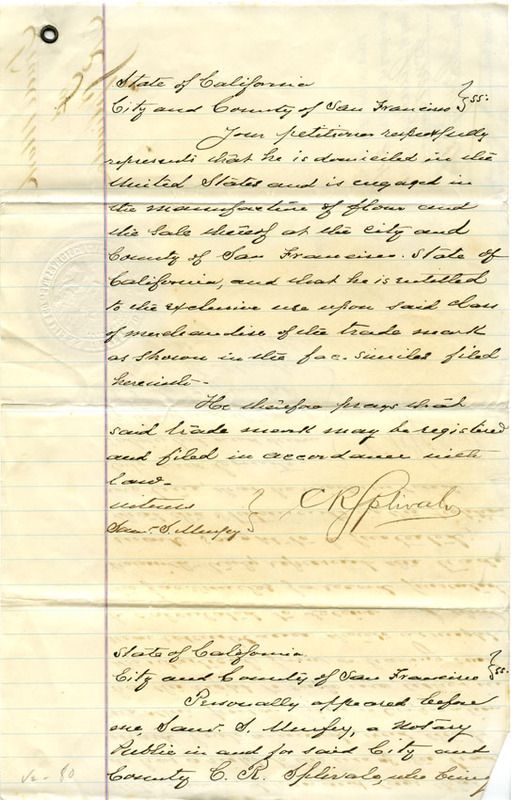 State of California
City and County of San Francisco } ss:
Your petitioner respectfully
represents that he is domiciled in the
United States and is engaged in
the manufacture of flour and
the Sale thereof at the City and
County of San Francisco. State of
California, and that he is entitled
to the exclusive use upon said class
of merchandise of the trade mark
as shown in the fac-similes filed
herewith-
He therefore prays that
said trade mark may be registered
and filed in accordance with
law-
witness } C R Splivalo
Saml. S. Murfey
State of California
City and County of San Francisco } ss.
Personally appeared before
me, Saml. S. Murfey, a Notary
Public in and for said City and
County C. R. Splivalo, who being